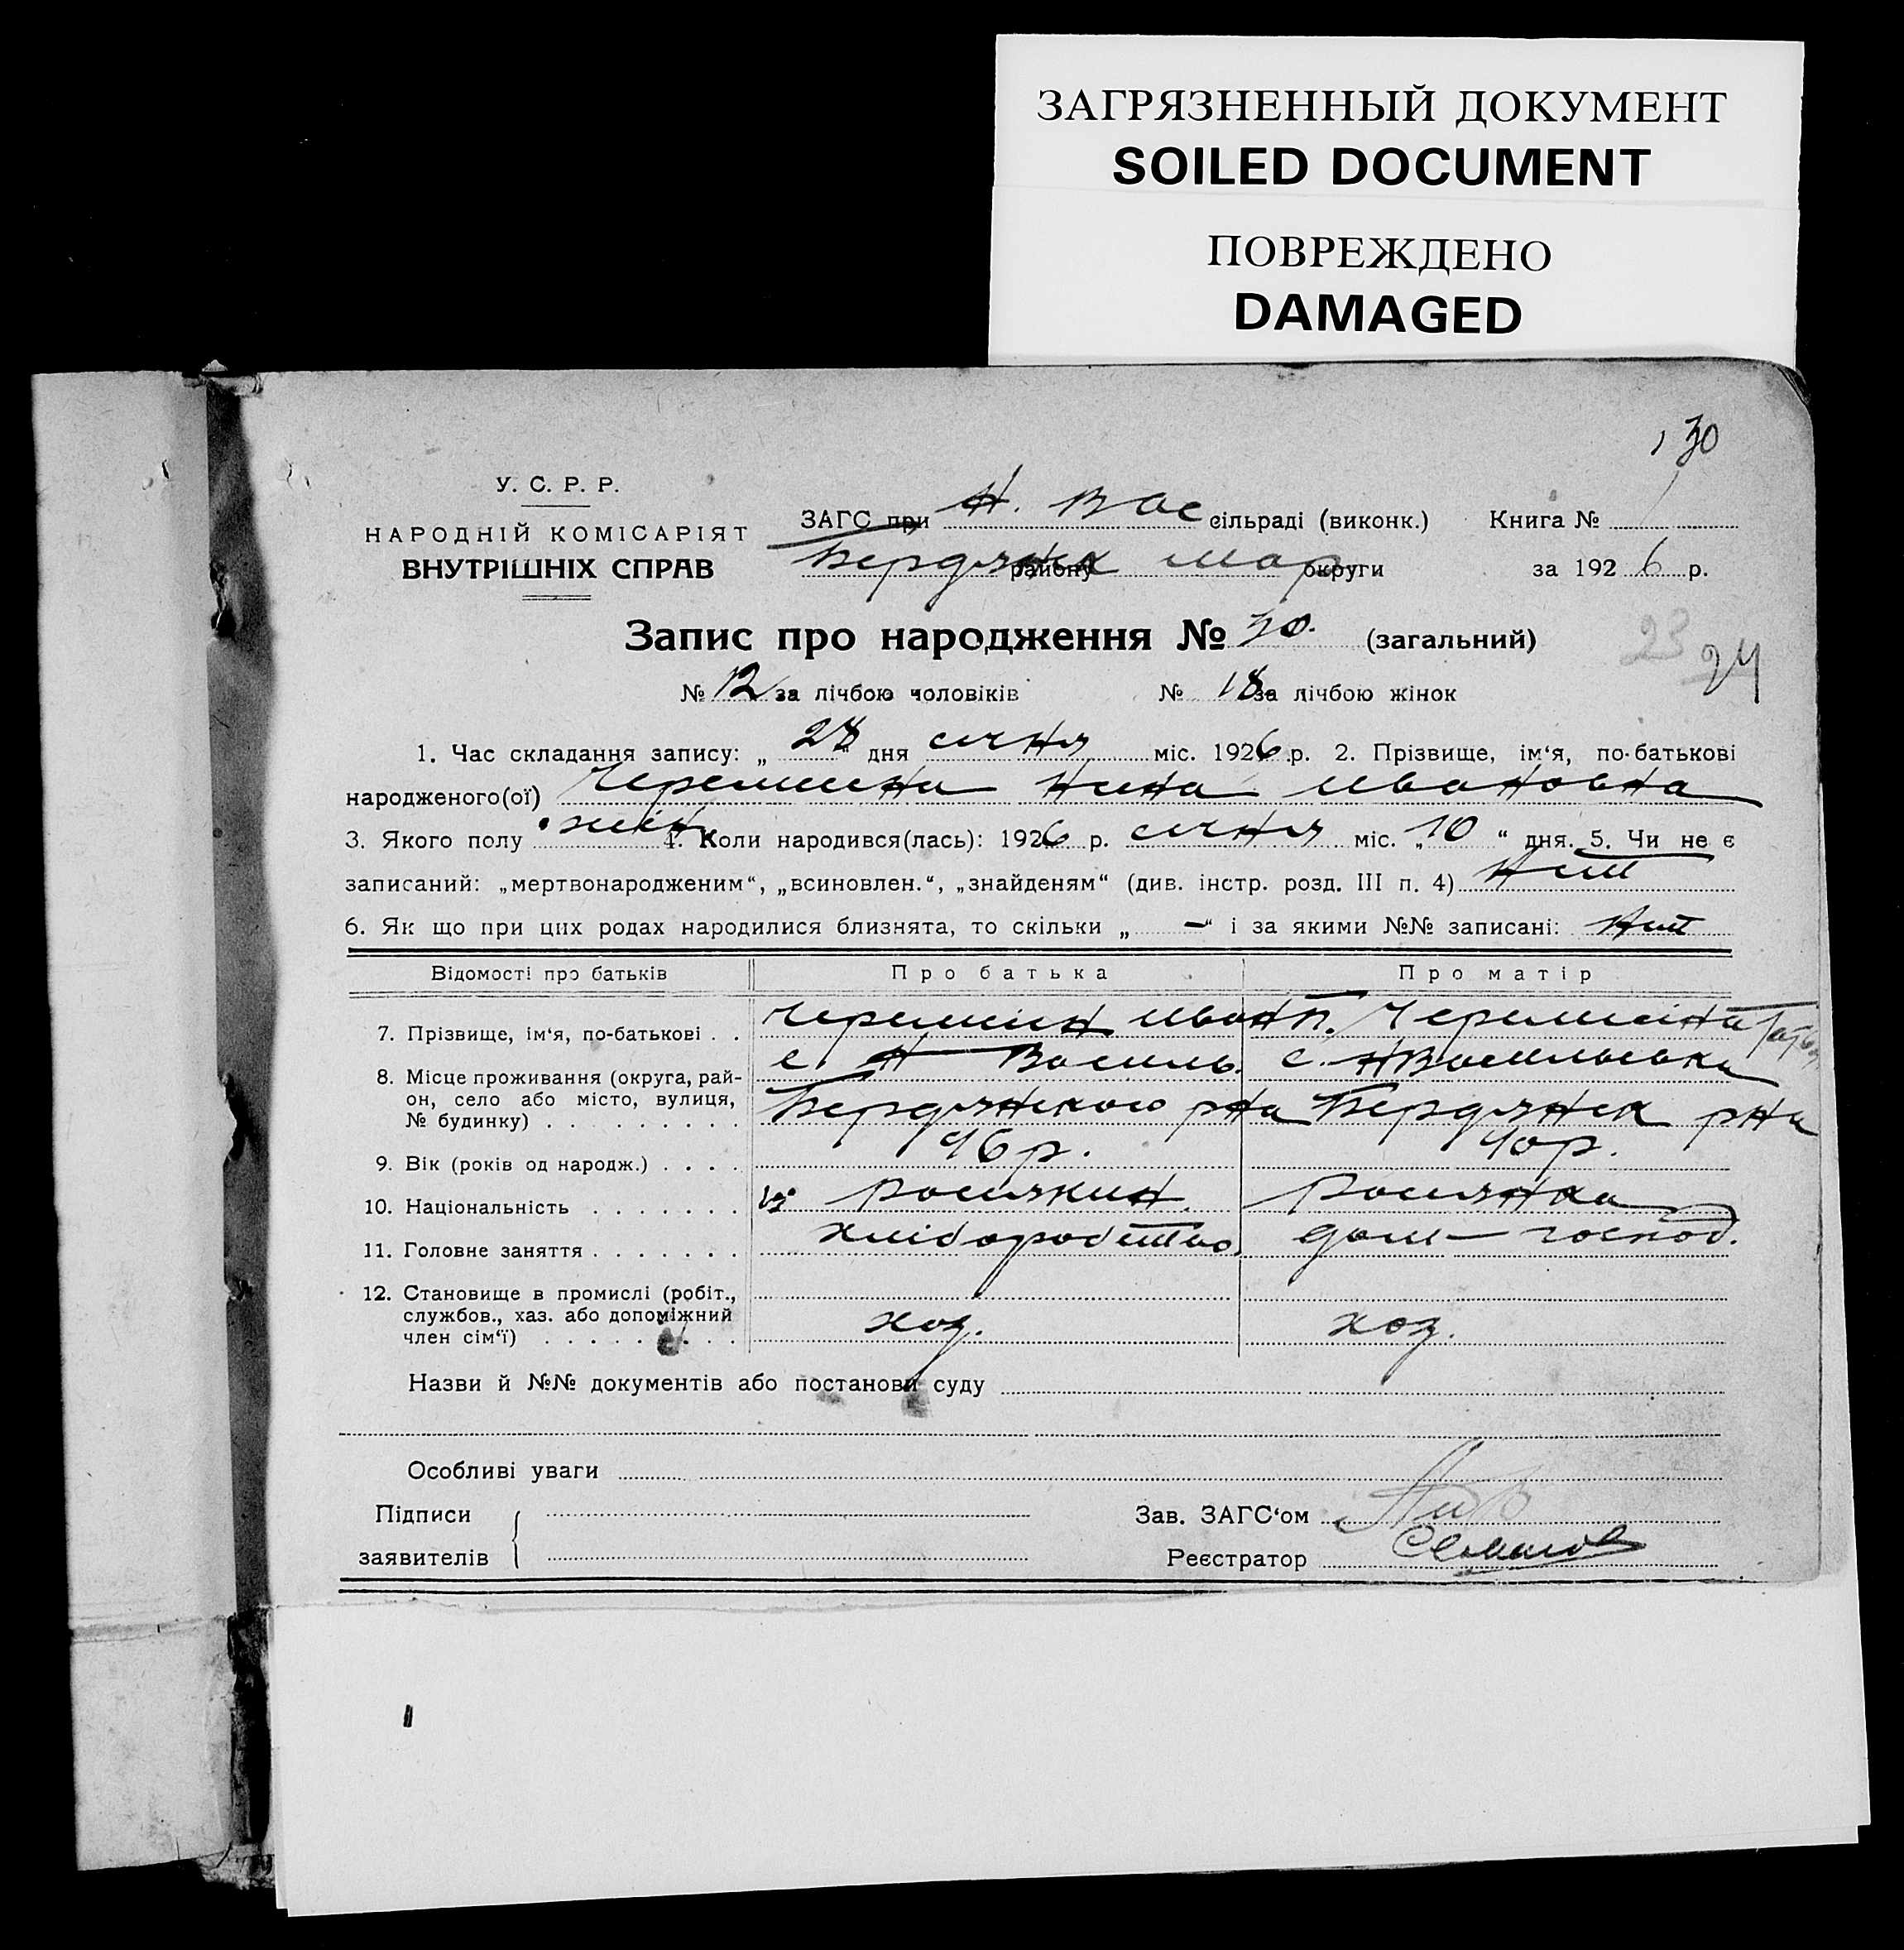 ЗАГРЯЗНЕННЫЙ ДОКУМЕНТ
SOILED DOCUMENT
ПОВРЕЖДЕНО
DAMAGED
30
У. С. Р. Р.
НАРОДНІЙ КОМІСАРІЯТ
ВНУТРІШНІХ СПРАВ
ЗАГС при Н. Вас сільраді (виконк.) Книга №
Бердянск району Мар округи за 1926 р.
Запис про народження № 30. (загальний)
23 24
№ 12 за лічбою чоловіків № 18 за лічбою жінок
1. Час складання запису: „ 28 “ дня січня міс. 1926 р. 2. Прізвище, ім‘я, по-батькові
народженого(ої) Черемшина Нина Ивановна
3. Якого полу жін 4. Коли народився(лась): 1926 р. січня міс. „ 10 “ дня. 5. Чи не є
записаний: „мертвонародженим“, „всиновлен.“, „знайденям“ (див. інстр. розд. III п. 4) Ниш
6. Як що при цих родах народилися близнята, то скільки „ — “ і за якими №№ записані: Ниш
Відомості про батьків Про батька Про матір
7. Прізвище, ім‘я, по-батькові . . Черемшин Иван П. Черемшіна
8. Місце проживання (округа, рай- с. Н Василь. с. НВасильевка
он, село або місто, вулиця, Бердянского рна Бердянск рна
№ будинку) . . . . . . . . .
9. Вік (років од народж.) . . . . 46 р. 40 р.
10. Національність . . . . . . . росиякин росиянка
11. Головне заняття . . . . . . . хліборобство дом — господ.
12. Становище в промислі (робіт.,
службов., хаз. або допоміжний хоз. хоз.
член сім‘ї) . . . . . . . . .
Назви й №№ документів або постанови суду
Особливі уваги
Підписи Зав. ЗАГС‘ом
заявителів Реєстратор